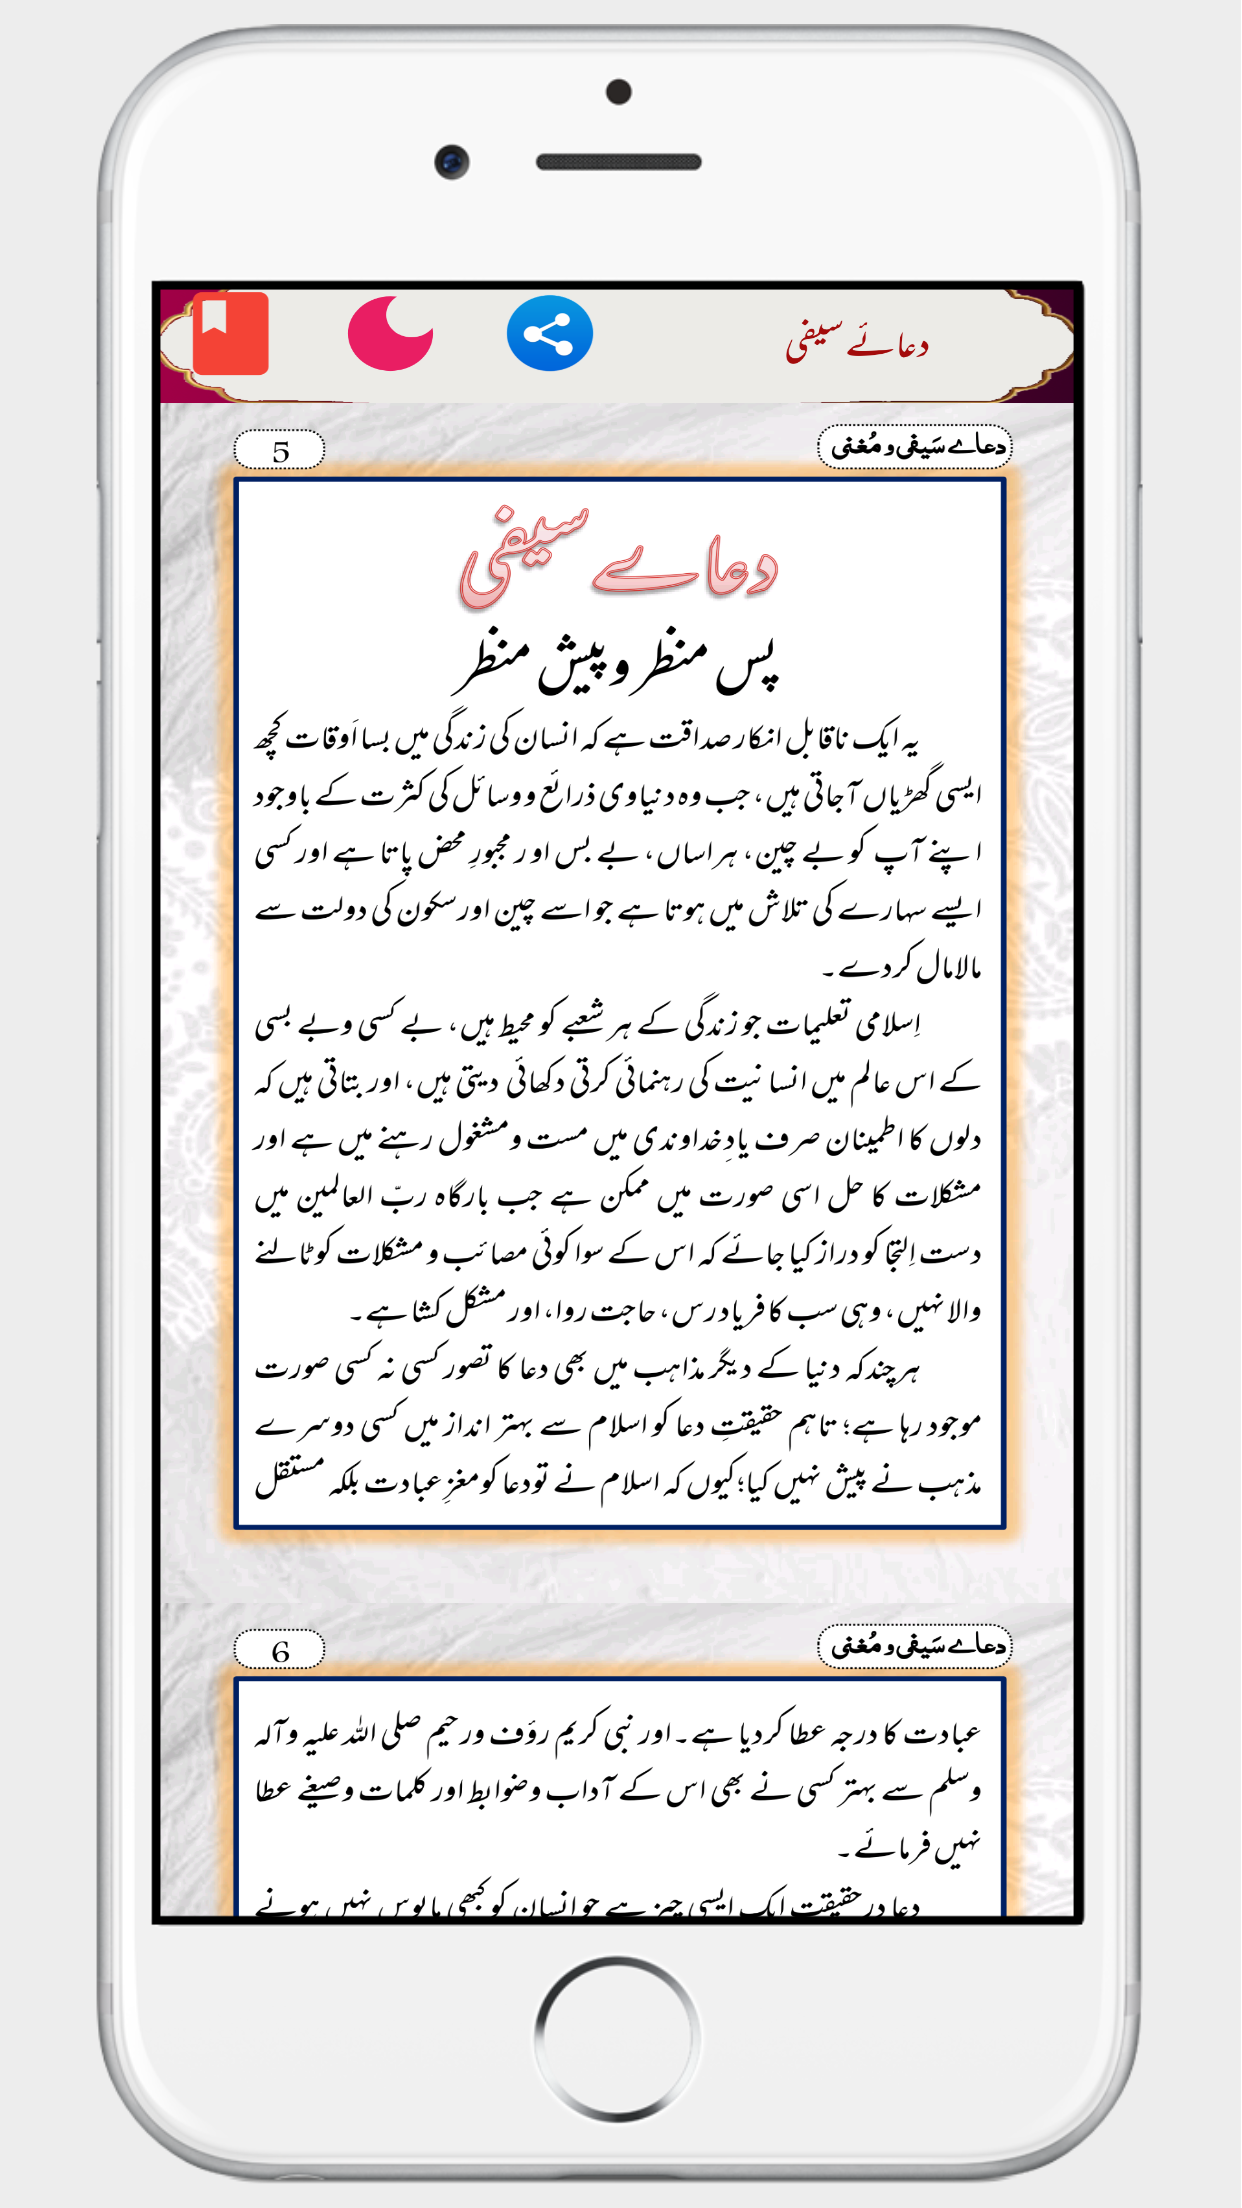 دعائے سیفی
دعاے سَیفی و مُغنی
5
دعاے سیفی
پس منظر و پیش منظر
یہ ایک ناقابل انکار صداقت ہے کہ انسان کی زندگی میں بسا اَوقات کچھ
ایسی گھڑیاں آجاتی ہیں، جب وہ دنیاوی ذرائع و وسائل کی کثرت کے باوجود
اپنے آپ کو بے چین، ہراساں، بے بس اور مجبورِ محض پاتا ہے اور کسی
ایسے سہارے کی تلاش میں ہوتا ہے جو اسے چین اور سکون کی دولت سے
مالا مال کردے۔
اِسلامی تعلیمات جو زندگی کے ہر شعبے کو محیط ہیں، بے کسی و بے بسی
کے اس عالم میں انسانیت کی رہنمائی کرتی دکھائی دیتی ہیں، اور بتاتی ہیں کہ
دلوں کا اطمینان صرف یادِ خداوندی میں مست و مشغول رہنے میں ہے اور
مشکلات کا حل اسی صورت میں ممکن ہے جب بارگاہ ربّ العالمین میں
دست اِلتجا کو دراز کیا جائے کہ اس کے سوا کوئی مصائب و مشکلات کو ٹالنے
والا نہیں، وہی سب کا فریادرس، حاجت روا، اور مشکل کشا ہے۔
ہرچند کہ دنیا کے دیگر مذاہب میں بھی دعا کا تصور کسی نہ کسی صورت
موجود رہا ہے؛ تاہم حقیقتِ دعا کو اسلام سے بہتر انداز میں کسی دوسرے
مذہب نے پیش نہیں کیا؛ کیوں کہ اسلام نے تو دعا کو مغزِ عبادت بلکہ مستقل
دعاے سَیفی و مُغنی
6
عبادت کا درجہ عطا کردیا ہے۔ اور نبی کریم رؤف و رحیم صلی اللہ علیہ وآلہ
وسلم سے بہتر کسی نے بھی اس کے آداب و ضوابط اور کلمات و صیغے عطا
نہیں فرمائے۔
دعا در حقیقت ایک ایسی چیز ہے جو انسان کو کبھی مایوس نہیں ہونے